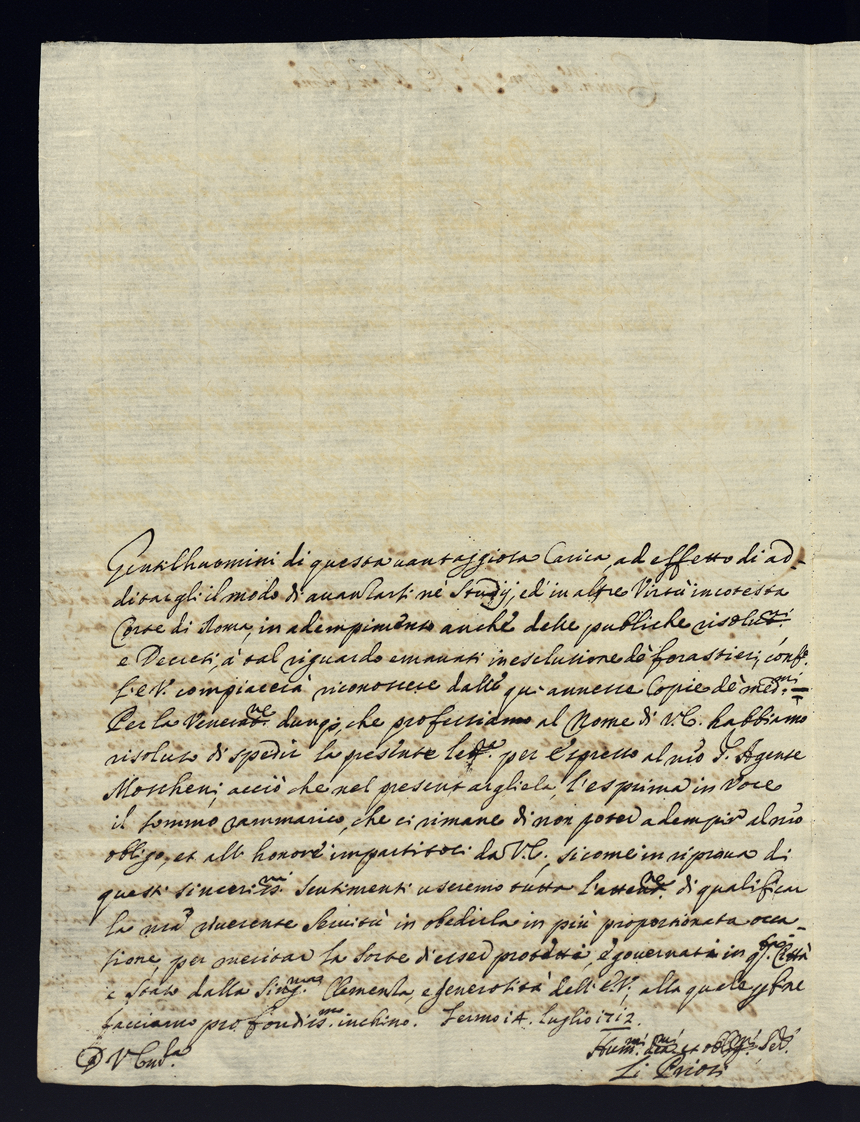 Gentilhuomini di questa vantaggiosa Carica, ad effetto di ad-
ditargli il modo di avanzarsi ne Studij, ed in altre Virtù in cotesta
Corte di Roma, in adempimento anche delle publiche risolut.ni
e Decreti, à tal riguardo emanati in esclusione de forastieri, conf.e
l'E.V. compiacerà riconoscere dalle qui annesse Copie de med.mi =
Per la Veneraz.ne dunq, che professiamo al Nome di V.E. habbiamo
risoluto di spedir la presente per espresso al nro S. Agente
Moscheni, acciò che nel presentargliela, l'esprima in voce
il sommo rammarico, che ci rimane di non poter adempir al nro
obligo, et all' honore impartitoci da V.E., sicome in riprova di
questi sinceris.mi sentimenti useremo tutta l'atten.ne di qualificar
la nra riverente Servitù in obedirla in più proportionata occa-
sione, per meritar la sorte d'esser protetti, e governati in Città
e Stato dalla Sing.ma Clemenza, e generosità dell'E.V. alla quale p fine
facciamo profondis.mo inchino. Fermo 14. Luglio 1712.
D V Em.za
Hum.mi et oblig.mi Ser.
Li Priori